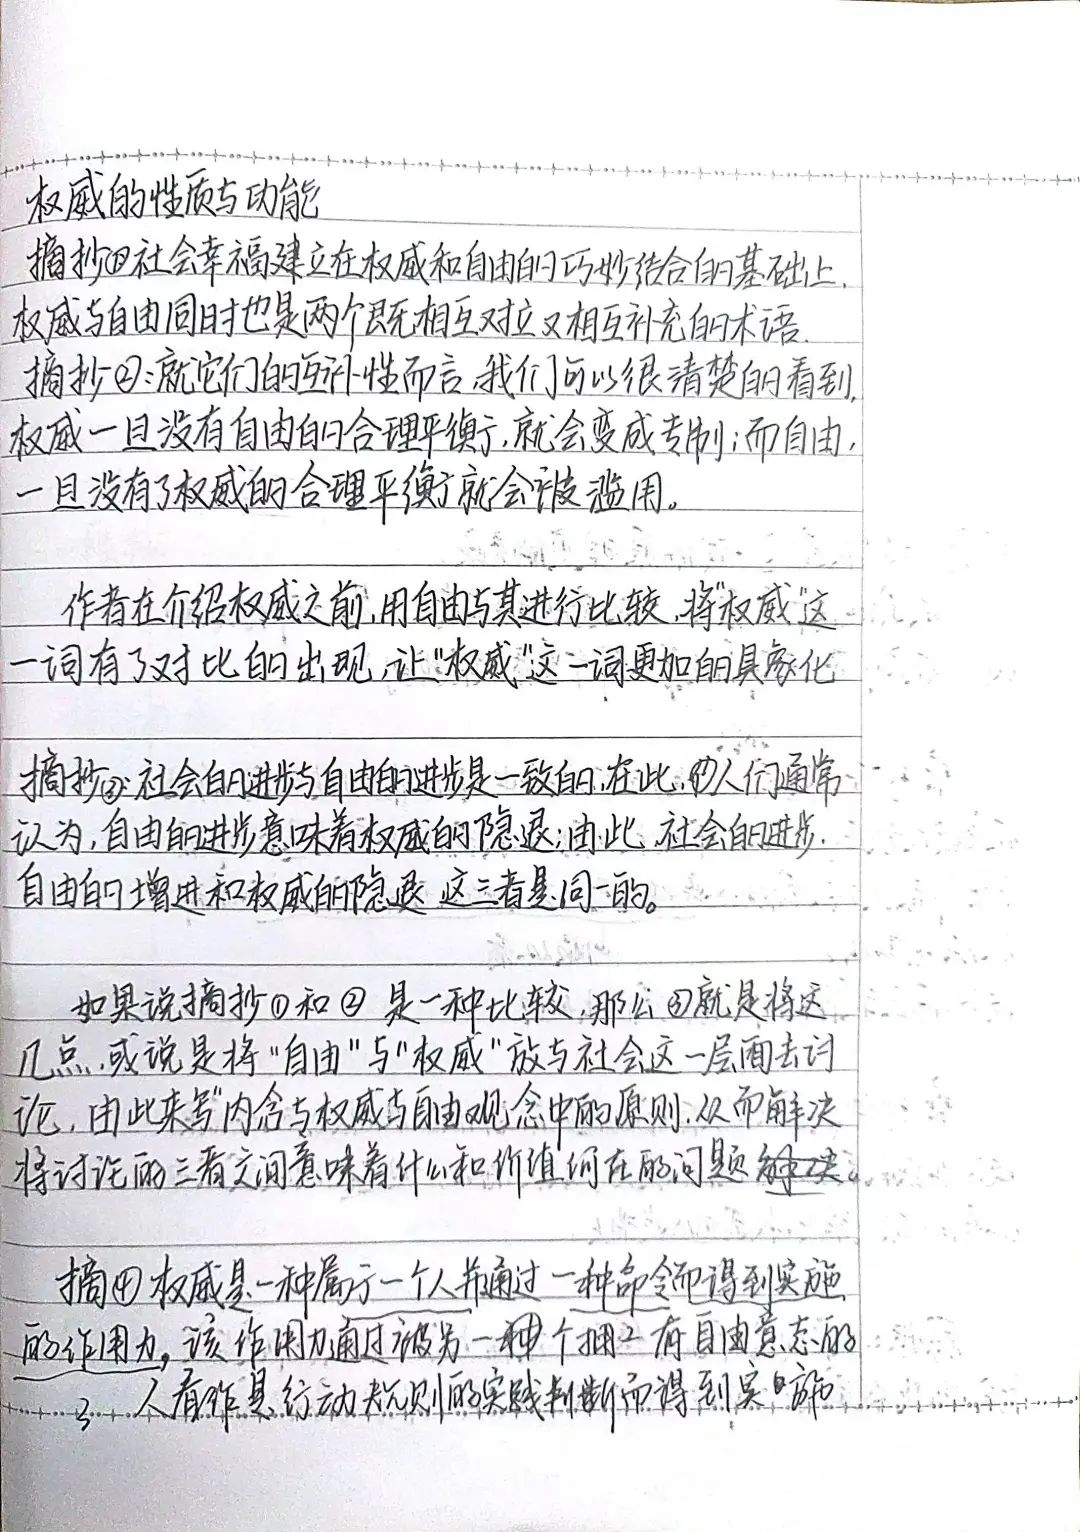 权威的性质与功能
摘抄①社会幸福建立在权威和自由的巧妙结合的基础上.
权威与自由同时也是两个既相互对立又相互补充的术语.
摘抄②:就它们的互补性而言,我们可以很清楚的看到,
权威一旦没有自由的合理平衡,就会变成专制;而自由,
一旦没有了权威的合理平衡就会被滥用。
作者在介绍权威之前,用自由与其进行比较,将"权威"这
一词有了对比的出现,让"权威"这一词更加的具象化
摘抄③:社会的进步与自由的进步是一致的,在此,人们通常
认为,自由的进步意味着权威的隐退;由此,社会的进步.
自由的增进和权威的隐退 这三者是同一的。
如果说摘抄①和② 是一种比较,那么③就是将这
几点,或说是将"自由"与"权威"放与社会这一层面去讨
论,由此来写"内含与权威与自由观念中的原则,从而解决
将讨论的三者之间意味着什么和价值何在的问题解决。
摘④权威是一种属于一个人并通过一种命令而得到实施
的作用力,该作用力通过被另一个拥有自由意志的
人看作是行动规则的实践判断而得到实施